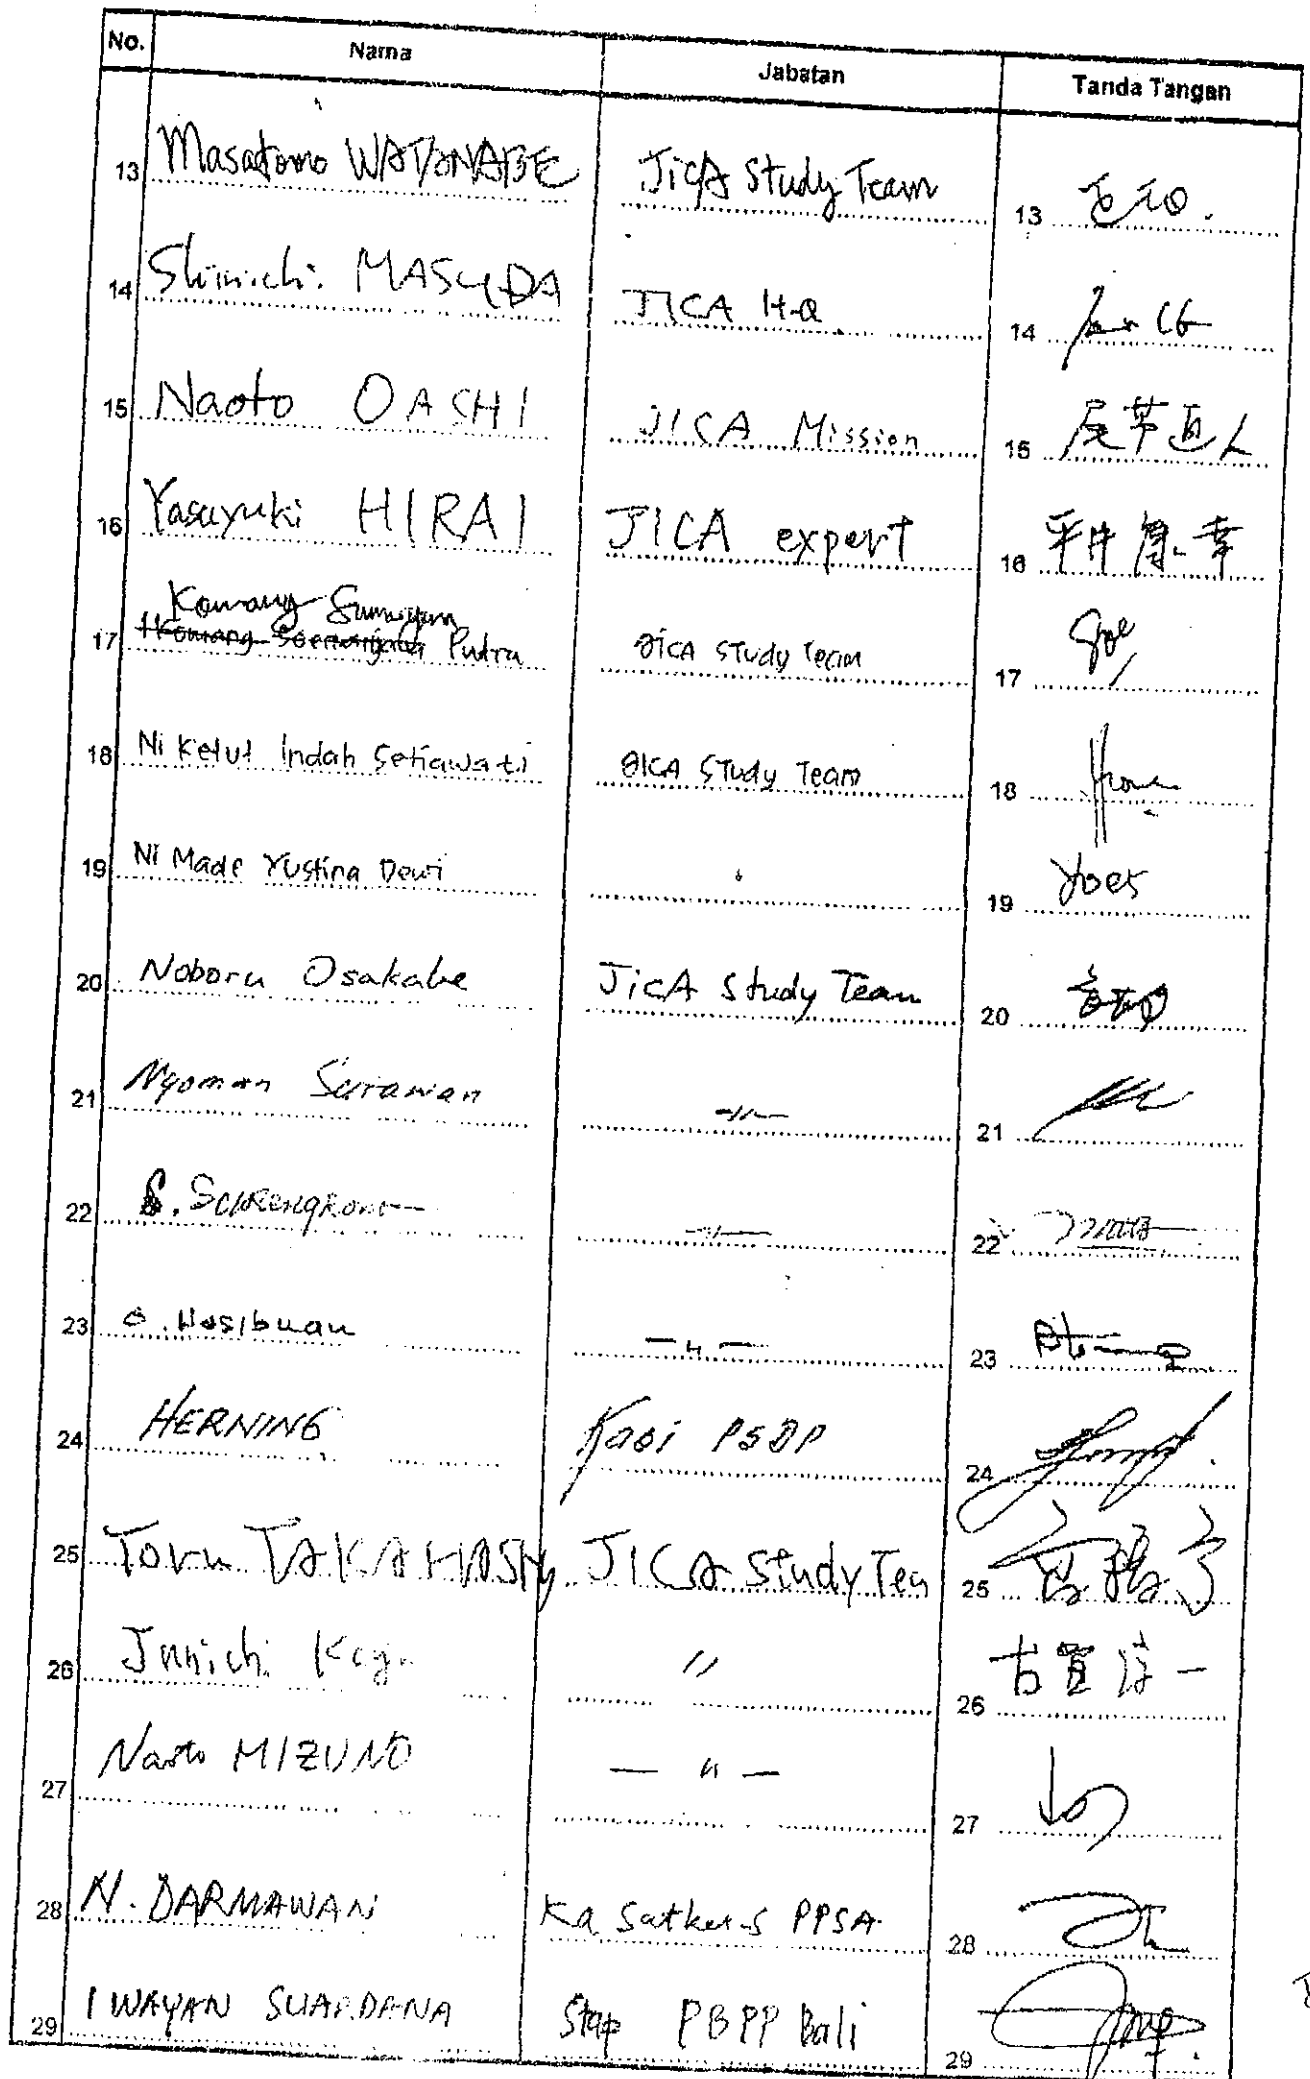 No. Nama Jabatan Tanda Tangan
13 Masatomo WATANABE JICA Study Team 13
14 Shinichi MASUDA JICA H.Q 14
15 Naoto OASHI JICA Mission 15 尾芦直人
16 Yasuyuki HIRAI JICA expert 16 平井康幸
Komang
17 Putra JICA Study Team 17
18 Ni Ketut Indah Setiawati JICA Study Team 18
19 Ni Made Yustina Dewi 19 Yoes
20 Noboru Osakabe JICA Study Team 20
21 Nyoman -〃- 21
22 -〃- 22
23 O. Hasibuan -〃- 23
24 HERNING PSDP 24
25 Toru TAKAHASHI JICA Study Tea 25
26 Junichi Koga 〃 26 古賀淳一
27 Naoto MIZUNO -〃- 27
28 N. DARMAWAN Ka Satker-S PPSA 28
29 I WAYAN SUARDANA Stap PBPP Bali 29